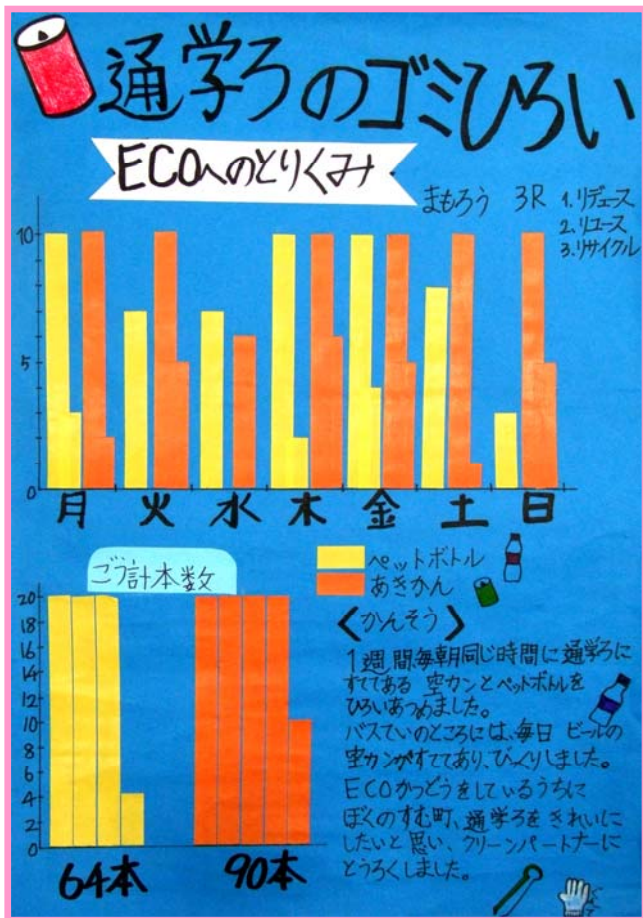 通学ろのゴミひろい
ECOへのとりくみ
まもろう 3R 1.リデュース
2.リユース
3.リサイクル
10
5
0
月 火 水 木 金 土 日
ペットボトル
あきかん
ごう計本数
20
18
16
14
12
10
8
6
4
2
0
64本 90本
〈かんそう〉
1週間毎朝同じ時間に通学ろに
すててある 空カンとペットボトルを
ひろいあつめました。
バスていのところには、毎日 ビールの
空カンがすててあり、びっくりしました。
ECOかつどうをしているうちに
ぼくのすむ町、通学ろを きれいに
したいと思い、クリーンパートナーに
とうろくしました。